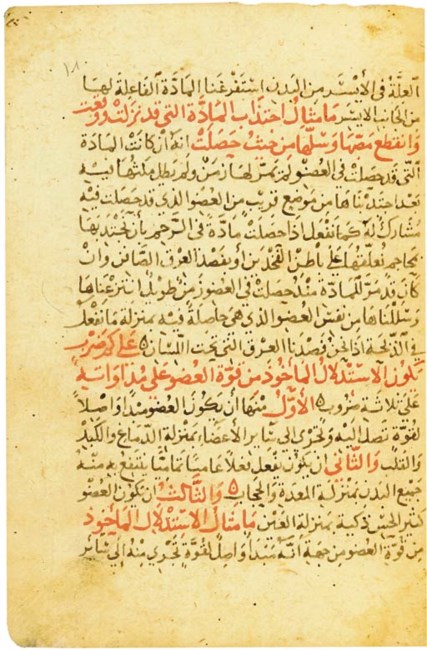 العلة في الأيسر من البدن استفرغنا المادة الفاعلة لها
من الجانب الايسر ما مثال اجتذاب المادة التي قد نزلت
وانقطع مصها وسلها من حيث حصلت انه ان كانت المادة
التي قد حصلت في العضو لم يمر لها زمن ولم يطل مكثها فيه
بعد اجتذبناها من موضع قريب من العضو الذي قد حصلت فيه
مشارك له كما نفعل اذا حصلت مادة في الرحم بأن نجتذبها
بمحاجم نعلقها على باطن الفخذين او بفصد العرق الصافن وان
كان قد مر للمادة منذ حصلت في العضو زمن طويل انتزعناها
وسللناها من نفس العضو الذي هي حاصلة فيه بمنزلة ما نفعل
في الذبحة اذا نحن فصدنا العرق التي تحت اللسان على كم ضرب
يكون الاستدلال المأخوذ من قوة العضو على مداواته
على ثلاثة ضروب الأول منها أن يكون العضو مبدا واصلا
لقوة تصل اليه وتجري الى سائر الاعضاء بمنزلة الدماغ والكبد
والقلب والثاني ان يكون يفعل فعلا عاميا تماما ينتفع به منه
جميع البدن بمنزلة المعدة والحجاب والثالث ان يكون العضو
كثير الحس ذكيه بمنزلة العين ما مثال الاستدلال المأخوذ
من قوة العضو من جهة أنه مبدأ واصل لقوة تجري منه الى سائر